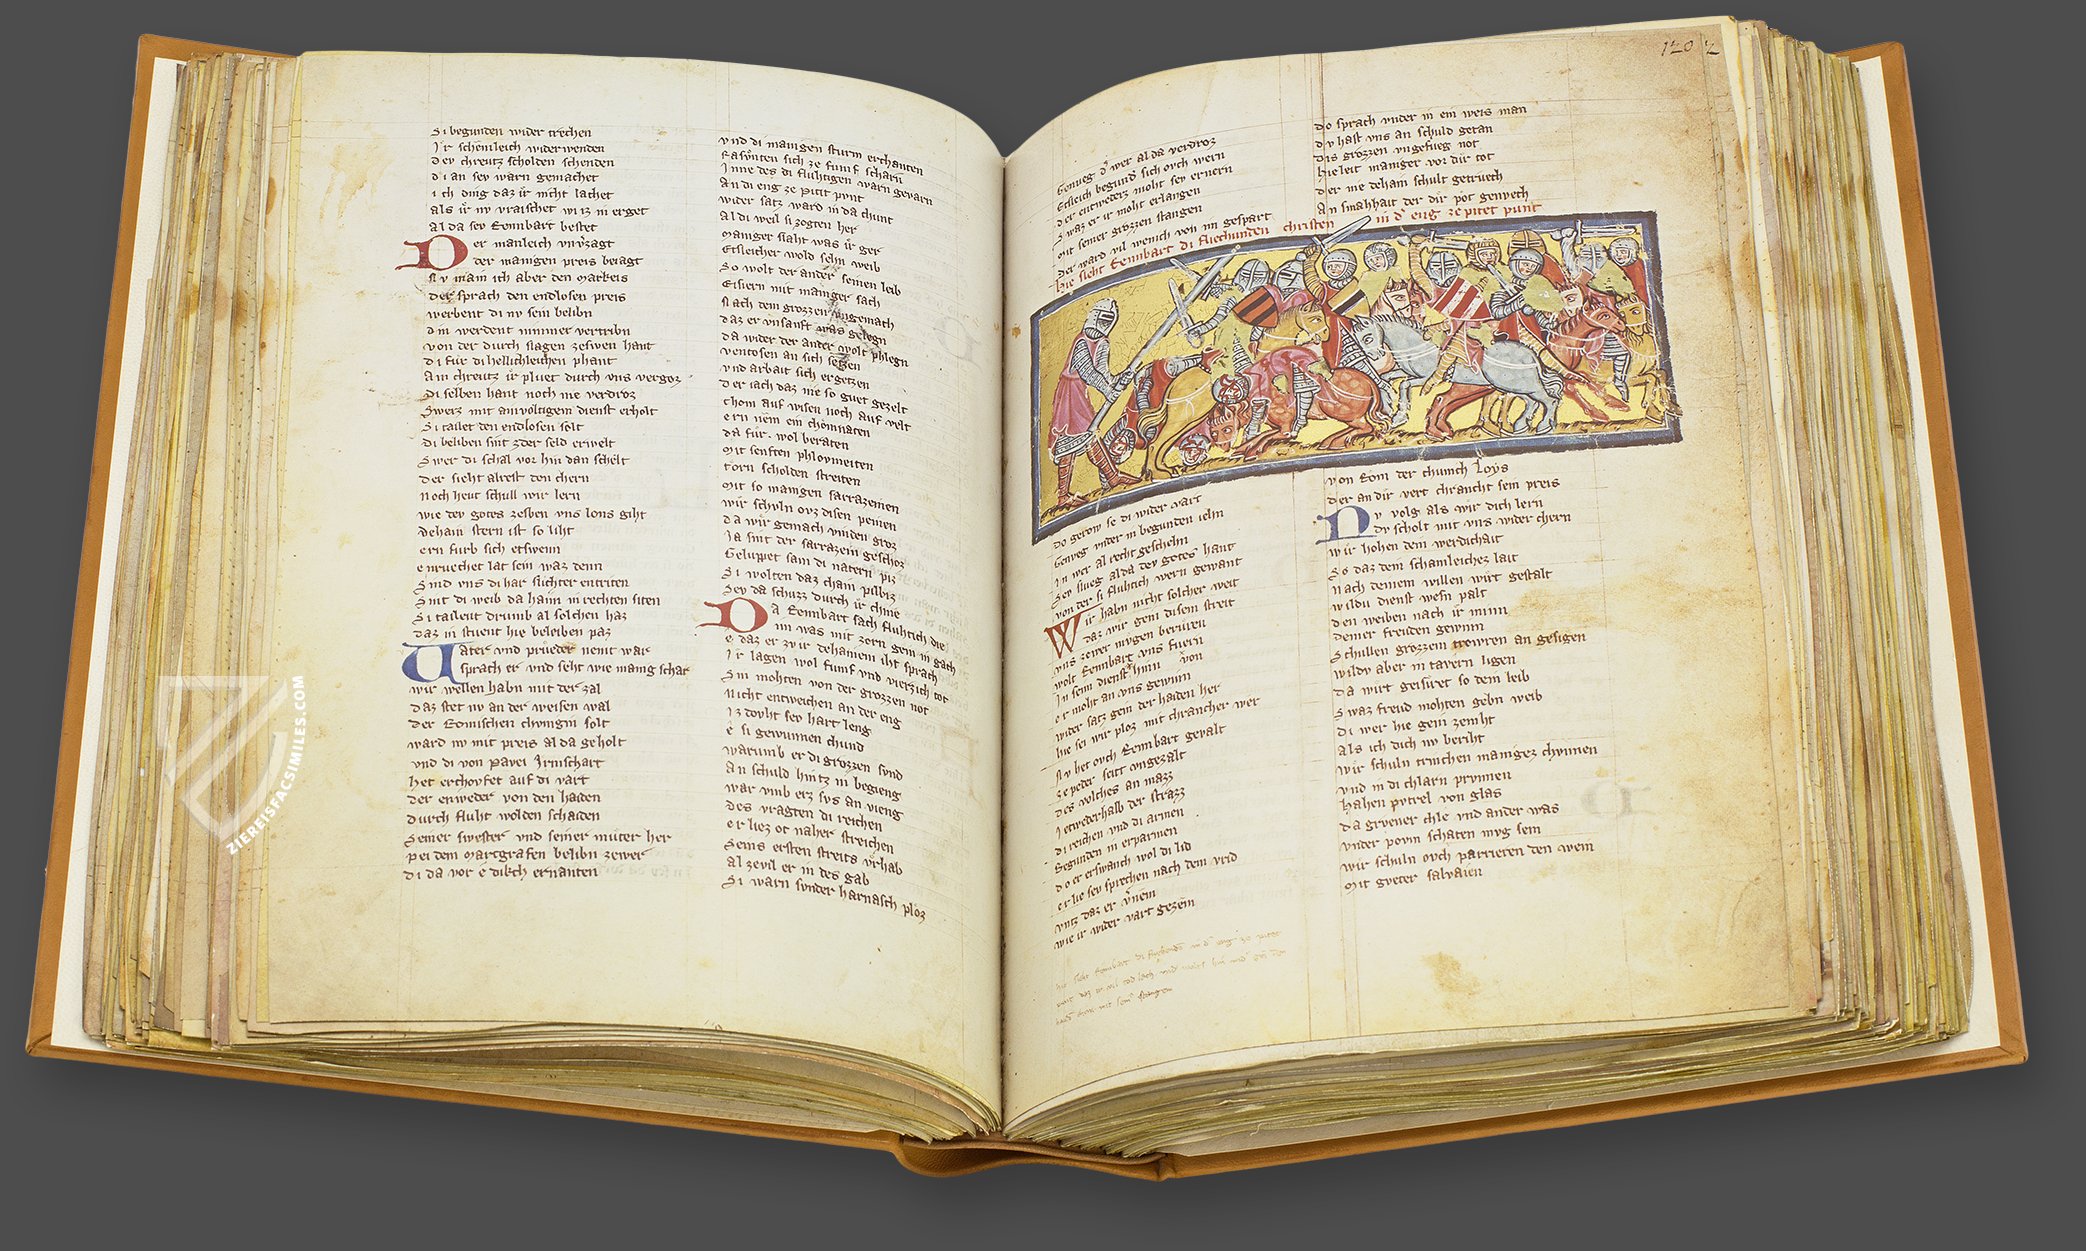 Si begunden wider trechen
Ir schemleich widerwenden
Dev chreutz scholden schenden
di an sev warn gemachet
ich ding daz ir nicht lachet
als ir nv vraischet wi iz in erget
al da sev Rennbart bestet
Der manleich vnverzagt
der manigen preis beiagt
Nv main ich aber den Markeis
der sprach den endlosen preis
werbent di nv sein belibn
di werdent nimmer vertribn
von der durch slagen zeswen hant
di für di hellichleichen phant
Am chreutz ir pluet durch vns vergoz
Di selben hant noch nie verdroz
Swerz mit ainvoltigem dienst erholt
Si tailet den endlosen solt
di beliben sint zder seld erwelt
Swer di schal vor hin dan schelt
der sieht alrest den chern
Noch hevt schull wir lern
wie dev gotes zesben vns lons giht
dehain stern ist so liht
ern furb sich etswenn
enruechet lat sein waz denn
Sind vns di har slichter entriten
Sint di weib da haim in rechten siten
Si tailent drumb al solchen haz
daz in stuent hie beleiben paz
Vater vnd prüeder nemt war
sprach er vnd seht wie manig schar
wir wellen habn mit der zal
daz stet nv an der weisen wal
der Romischen chvngin solt
ward nv mit preis al da geholt
vnd di von Pavei Irmschart
het erchovfet auf di vart
der entweder von den haiden
durch fluht wolden schaiden
Seiner swester vnd seiner muter her
pei dem Martgrafen belibn zewer
di da vor e dikch ernanten
vnd di manigen sturm erchanten
Rasvnten sich ze funf scharn
Inne des di fluhtigen warn gevarn
An di eng ze Pitit pvnt
wider satz ward in da chunt
Al di weil si zogten her
Maniger slaht was ir ger
Etsleicher wold sehn weib
So wolt der ander seinen leib
Eisiern mit maniger sach
Nach dem grozzen vngemach
daz er vnsanft was gelegn
da wider der ander wolt phlegn
ventosen an sich setzen
vnd arbait sich ergetzen
der iach daz nie so guet gezelt
chom auf wisen noch auf velt
ern nem ein chömnaten
da für wol beraten
Mit senften phlovmeiten
torn scholden streiten
Mit so manigen sarrazeinen
wir schvln ovz disen peinen
da wir gemach vinden groz
Ia sint der sarrazein geschoz
Gelüppet sam di natern piz
Si wolten daz chain pilbiz
Sev da schuzz durch ir chnie
Da Rennbart sach fluhtich die
im was mit zorn gem in gach
e daz er zv ir dehainem iht sprach
Ir lagen wol funf vnd vierzich tot
Sin mohten von der grozzen not
Nicht entweichen an der eng
Iz dovht sev hart leng
e si gewunnen chund
warumb er di grozzen svnd
An schuld hintz in begieng
war vmb erz svs an vieng
des vragten di reichen
er liez ot naher streichen
Seins ersten streits vrhab
al zevil er in des gab
Si warn svnder harnasch ploz
120 2
Genueg der wer al da verdroz
Etsleich begund sich ovch wern
der entweders moht sev ernern
Swaz er ir moht erlangen
mit seiner grozzen stangen
der ward vil wenich von im gespart
hie slecht Rennbart di fliechunden christen in der eng ze pitet punt
do gerow se di wider vart
Genveg vnder in begunden iehn
In wer al recht geschehn
Sev slueg alda dev gotes hant
von der si fluhtich wern gewant
Wir habn nicht solcher weit
daz wir gem disem streit
vns zewer mvgen berüren
wolt Rennbart vns fuern
In seim dienst hinn von
er moht an vns gewinn
wider satz gem der haiden her
hie sei wir ploz mit chrancher wer
Nv het ovch Rennbart gevalt
ze peder seitt vngezalt
des volches an mazz
Ietwederhalb der strazz
di reichen vnd di armen
Begunden in erparmen
do er erswanch wol di lid
er lie sev sprechen nach dem vrid
vntz daz er vernem
wie ir wider vart gezem
do sprach vnder in ein weis man
dv hast vns an schuld getan
dis grozzen vngefueg not
hie leit maniger vor dir tot
der nie dehain schult getruech
An smahhait der dir pot genvech
von Rom der chunich Loys
der an dir vert chrancht sein preis
Nv volg als wir dich lern
dv scholt mit vns wider chern
wir hohen dem werdichait
So daz dem schamleichez lait
Nach deinem willen wirt gestalt
wildu dienst wesn palt
den weiben nach ir minn
deiner freuden gewinn
Schullen grozzem trowren an gesigen
wildv aber in tavern ligen
da wirt gefüret so dem leib
Swaz freud mohten gebn weib
di wer hie gein zeniht
als ich dich nv beriht
wir schuln trinchen manigez chvnnen
vnd in di chlarn prvnnen
Hahen pvtrel von glas
da grvener chle vnd ander was
vnder povm schaten mvg sein
wir schuln ovch parrieren den wein
Mit gveter salvaien
ZIEREISFACSIMILES.COM